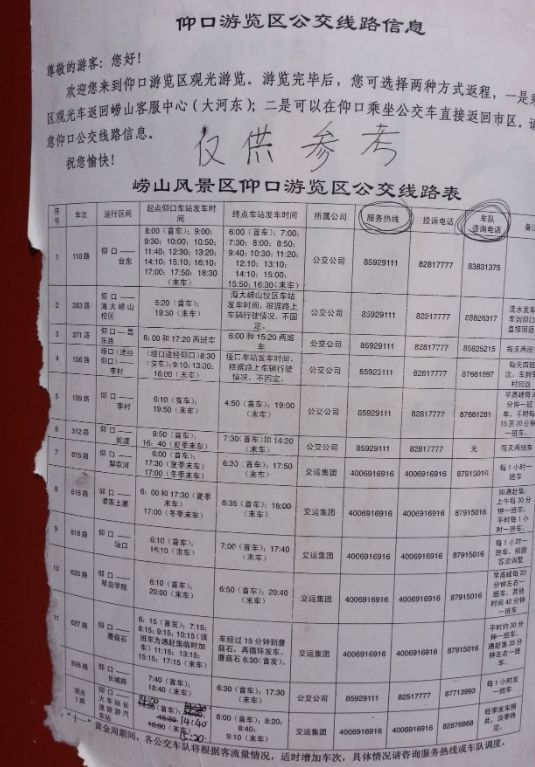 仰口游览区公交线路信息
尊敬的游客：您好！
欢迎您来到仰口游览区观光游览。游览完毕后，您可选择两种方式返程，一是乘
区观光车返回崂山客服中心（大河东）；二是可以在仰口乘坐公交车直接返回市区。请
意仰口公交线路信息。
祝您愉快！
仅供参考
崂山风景区仰口游览区公交线路表
序号 车次 运行区间 起点仰口车站发车时间 终点车站发车时间 所属公司 服务热线 投诉电话 车队咨询电话 备注
1 110路 仰口——台东 8:00（首车）；9:00；9:30；10:00；10:50；11:40；12:30；13:20；14:10；15:10；16:10；17:00；17:50；18:30（末车） 6:00（首车）；7:00；7:30；8:00；8:50；9:40；10:30；11:20；12:10；13:10；14:10；15:00；15:50；16:30（末车） 公交公司 85929111 82817777 83831375
2 383路 仰口——海大崂山校区 5:20（首车）；19:30（末车） 海大崂山校区车站发车时间，根据路上车辆行驶情况，不固定。 公交公司 85929111 82817777 88826317 流水发车
3 371路 8:00和17:20两班车 6:00和15:20两班车 公交公司 85929111 82817777 85825215 每天两班
4 106路 垭口（途经仰口）——李村 （垭口途经仰口）8:30（首车）；9:10；13:00；16:00（末车） 垭口车站发车时间，根据路上车辆行驶情况，不固定。 公交公司 85929111 82817777 87661897
5 109路 仰口——李村 6:10（首车）；19:50（末车） 4:50（首车）；19:00（末车） 公交公司 85929111 82817777 87661281
6 312路 仰口—— 9:50（首车）；16:40（夏季末车） 7:30（首车）和14:20（末车） 公交公司 85929111 82817777 无 每天两班车
7 615路 仰口—— 6:00（首车）；17:30（夏季末车）17:00（冬季末车） 6:30（首车）；17:50（末车） 交运集团 4006916916 4006916916 87915016 每1小时一班车
8 616路 仰口—— 6:00和17:30（夏季末车）17:00（冬季末车） 6:35（首车）；18:00（末车） 交运集团 4006916916 4006916916 87915016 如遇赶集，上午每30分钟一班车，平时每1小时一班车。
9 618路 仰口——垭口 6:10（首车）；16:10（末车） 7:00（首车）；17:40（末车） 交运集团 4006916916 4006916916 87915016 每1小时一班车，根据客流调整
10 620路 仰口——琴岛学院 6:10（首车）；20:00（末车） 6:50（首车）；20:40（末车） 交运集团 4006916916 4006916916 87915016 早高峰每20分钟左右一班车，其他时间40分钟一班车
11 627路 仰口——蘑菇石 6:15（首发）；7:15；8:15；9:15；10:15（该班车为遇赶集临时加车）11:15；13:15；15:15；17:15（末车） 车经过15分钟到蘑菇石，再循环发车。蘑菇石6:30（首发）。 交运集团 4006916916 4006916916 87915016
926路 仰口——长城路 7:40（首车）；18:40（末车） 6:30（首车）；17:30（末车） 公交公司 85929111 82517777 87713993 每1小时发一班车
观光1路 仰口——火车站 8:00（首车）；8:20；8:40；9:10（末车） 交运集团 4006916916 4006916916 82876868
“十一”黄金周期间，各公交车队将根据客流量情况，适时增加车次，具体情况请咨询服务热线或车队调度。